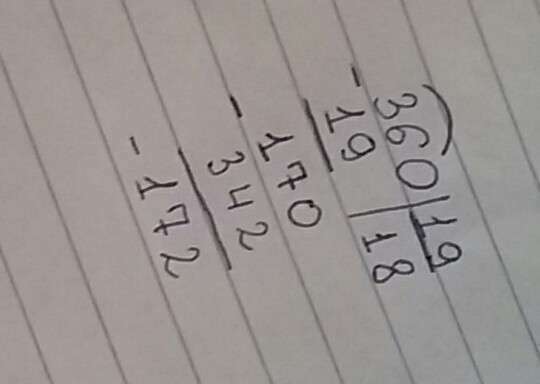 360 19
-19 18
170
-342
-172